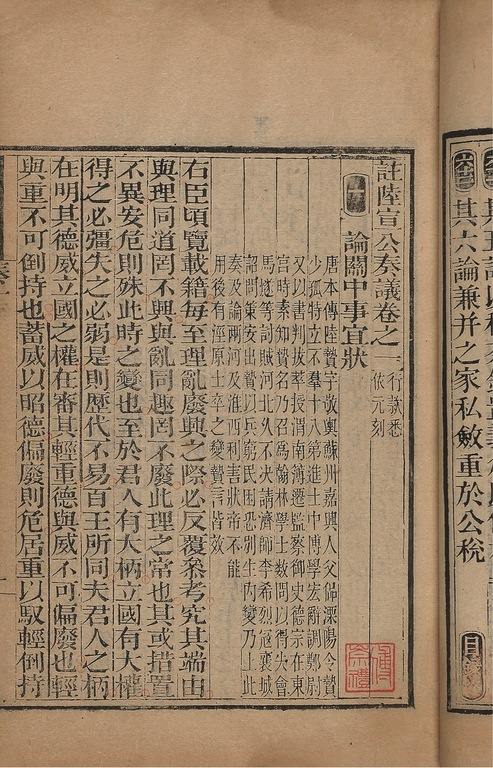 其六論兼并之家私斂重於公稅
目
註陸宣公奏議卷之一
行款悉
依元刻
一
論關中事宜狀
唐本傳陸贄字敬輿蘇州嘉興人父偘溧陽令贄
少孤特立不羣十八第進士中博學宏辭調鄭尉
又以書判拔萃授渭南簿遷監察御史德宗在東
宮時素知贄名乃召為翰林學士數問以得失會
馬燧等討賊河北久不決請濟師李希烈寇襄城
詔問策安出贄以兵窮民困恐別生內變乃上此
奏及論兩河及淮西利害狀帝不能
用後有涇原士卒之變贄言皆效
右臣頃覽載籍每至理亂廢興之際必反覆叅考究其端由
與理同道罔不興與亂同趣罔不廢此理之常也其或措置
不異安危則殊此時之變也至於君人有大柄立國有大權
得之必彊失之必弱是則歷代不易百王所同夫君人之柄
在明其德威立國之權在審其輕重德與威不可偏廢也輕
與重不可倒持也蓄威以昭德偏廢則危居重以馭輕倒持